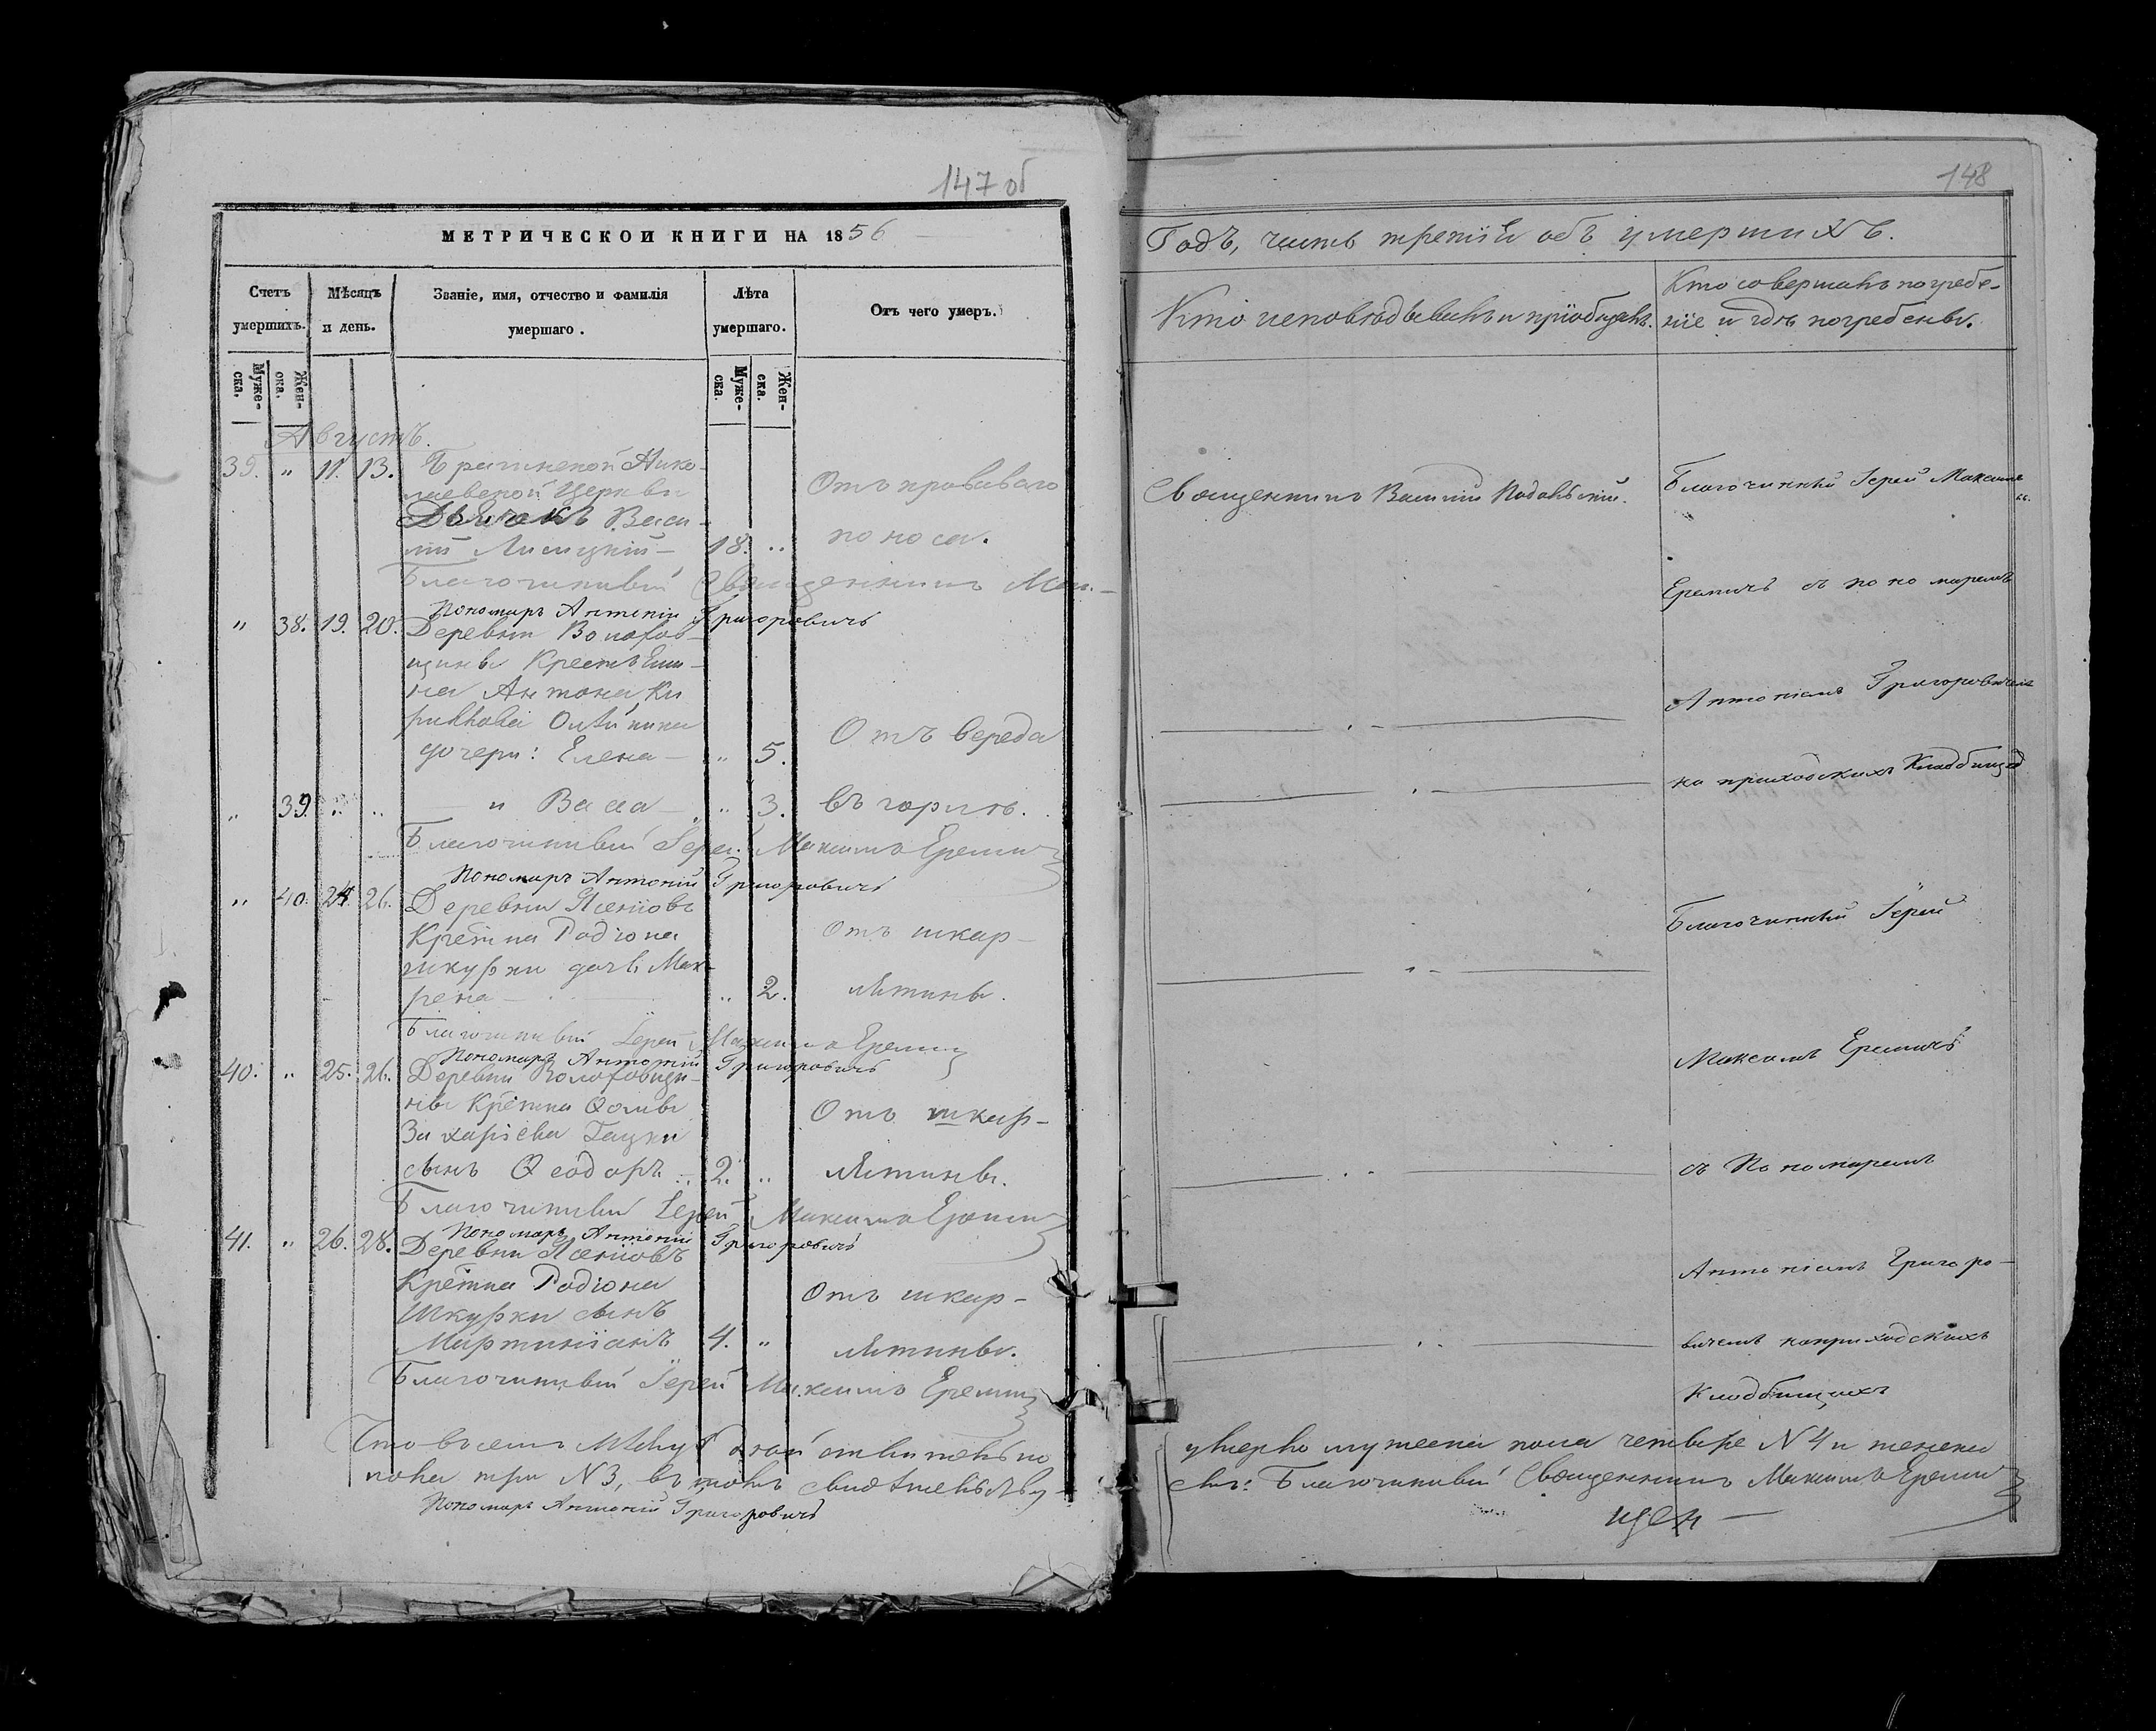 147 об
МЕТРИЧЕСКОЙ КНИГИ НА 1856
Счетъ умершихъ.
Мѣсяцъ и день.
Званіе, имя, отчество и фамилія умершаго.
Лѣта умершаго.
Отъ чего умеръ.
Муже-ска.
Жен-ска.
Муже-ска.
Жен-ска.
Августъ.
39. " 11. 13. Брагинской Нико-
лаевской Церкви
Дьячекъ Васи-
лій Лисицкій — 18. "
Отъ кроваваго
поноса.
Благочинный Священникъ
Пономарь Антоній Григоровичъ
" 38. 19. 20. Деревни Волохов-
щины Крестьяни-
на Антона Ки
дочери: Елена — " 5.
Отъ вереда
" 39. " " — и Васса — " 3. въ горлѣ.
Благочинный Іерей Максимъ Еремич
Пономарь Антоній Григоровичъ
" 40. 24. 26. Деревни Ясеновъ
Крестна Родіона
Шкурки дочь Мак-
рена — " 2.
Отъ шкар-
лятины.
Благочинный Іерей Максимъ Еремич
Пономарь Антоній Григоровичъ
40. " 25. 26. Деревни Волоховщи-
ны Крестна Ѳомы
Захаріева Гацки
сынъ Ѳеодоръ 2. "
Отъ шкар-
лятины.
Благочинный Іерей Максимъ Еремич
Пономарь Антоній Григоровичъ
41. " 26. 28. Деревни Ясеновъ
Крестна Родіона
Шкурки сынъ
Мартиніанъ 4. "
Отъ шкар-
лятины.
Благочинный Іерей Максимъ Еремич
Что въ семъ
пола три N 3, въ томъ свидѣтельству-
Пономарь Антоній Григоровичъ
148
Годъ, часть третій объ умершихъ.
Кто исповѣдывалъ и пріобщалъ.
Кто совершалъ погребе-
ніе и гдѣ погребены.
Священникъ Василій
Благочинный Іерей Максимъ
Еремичъ съ пономаремъ
Антоніемъ Григоровичемъ
на приходскихъ Кладбищахъ
Благочинный Іерей
Максимъ Еремичъ
съ Пономаремъ
Антоніемъ Григоро-
вичемъ на приходскихъ
Кладбищахъ
умерло мужеска пола четыре N 4 и женска
емъ: Благочинный Священникъ Максимъ Еремич